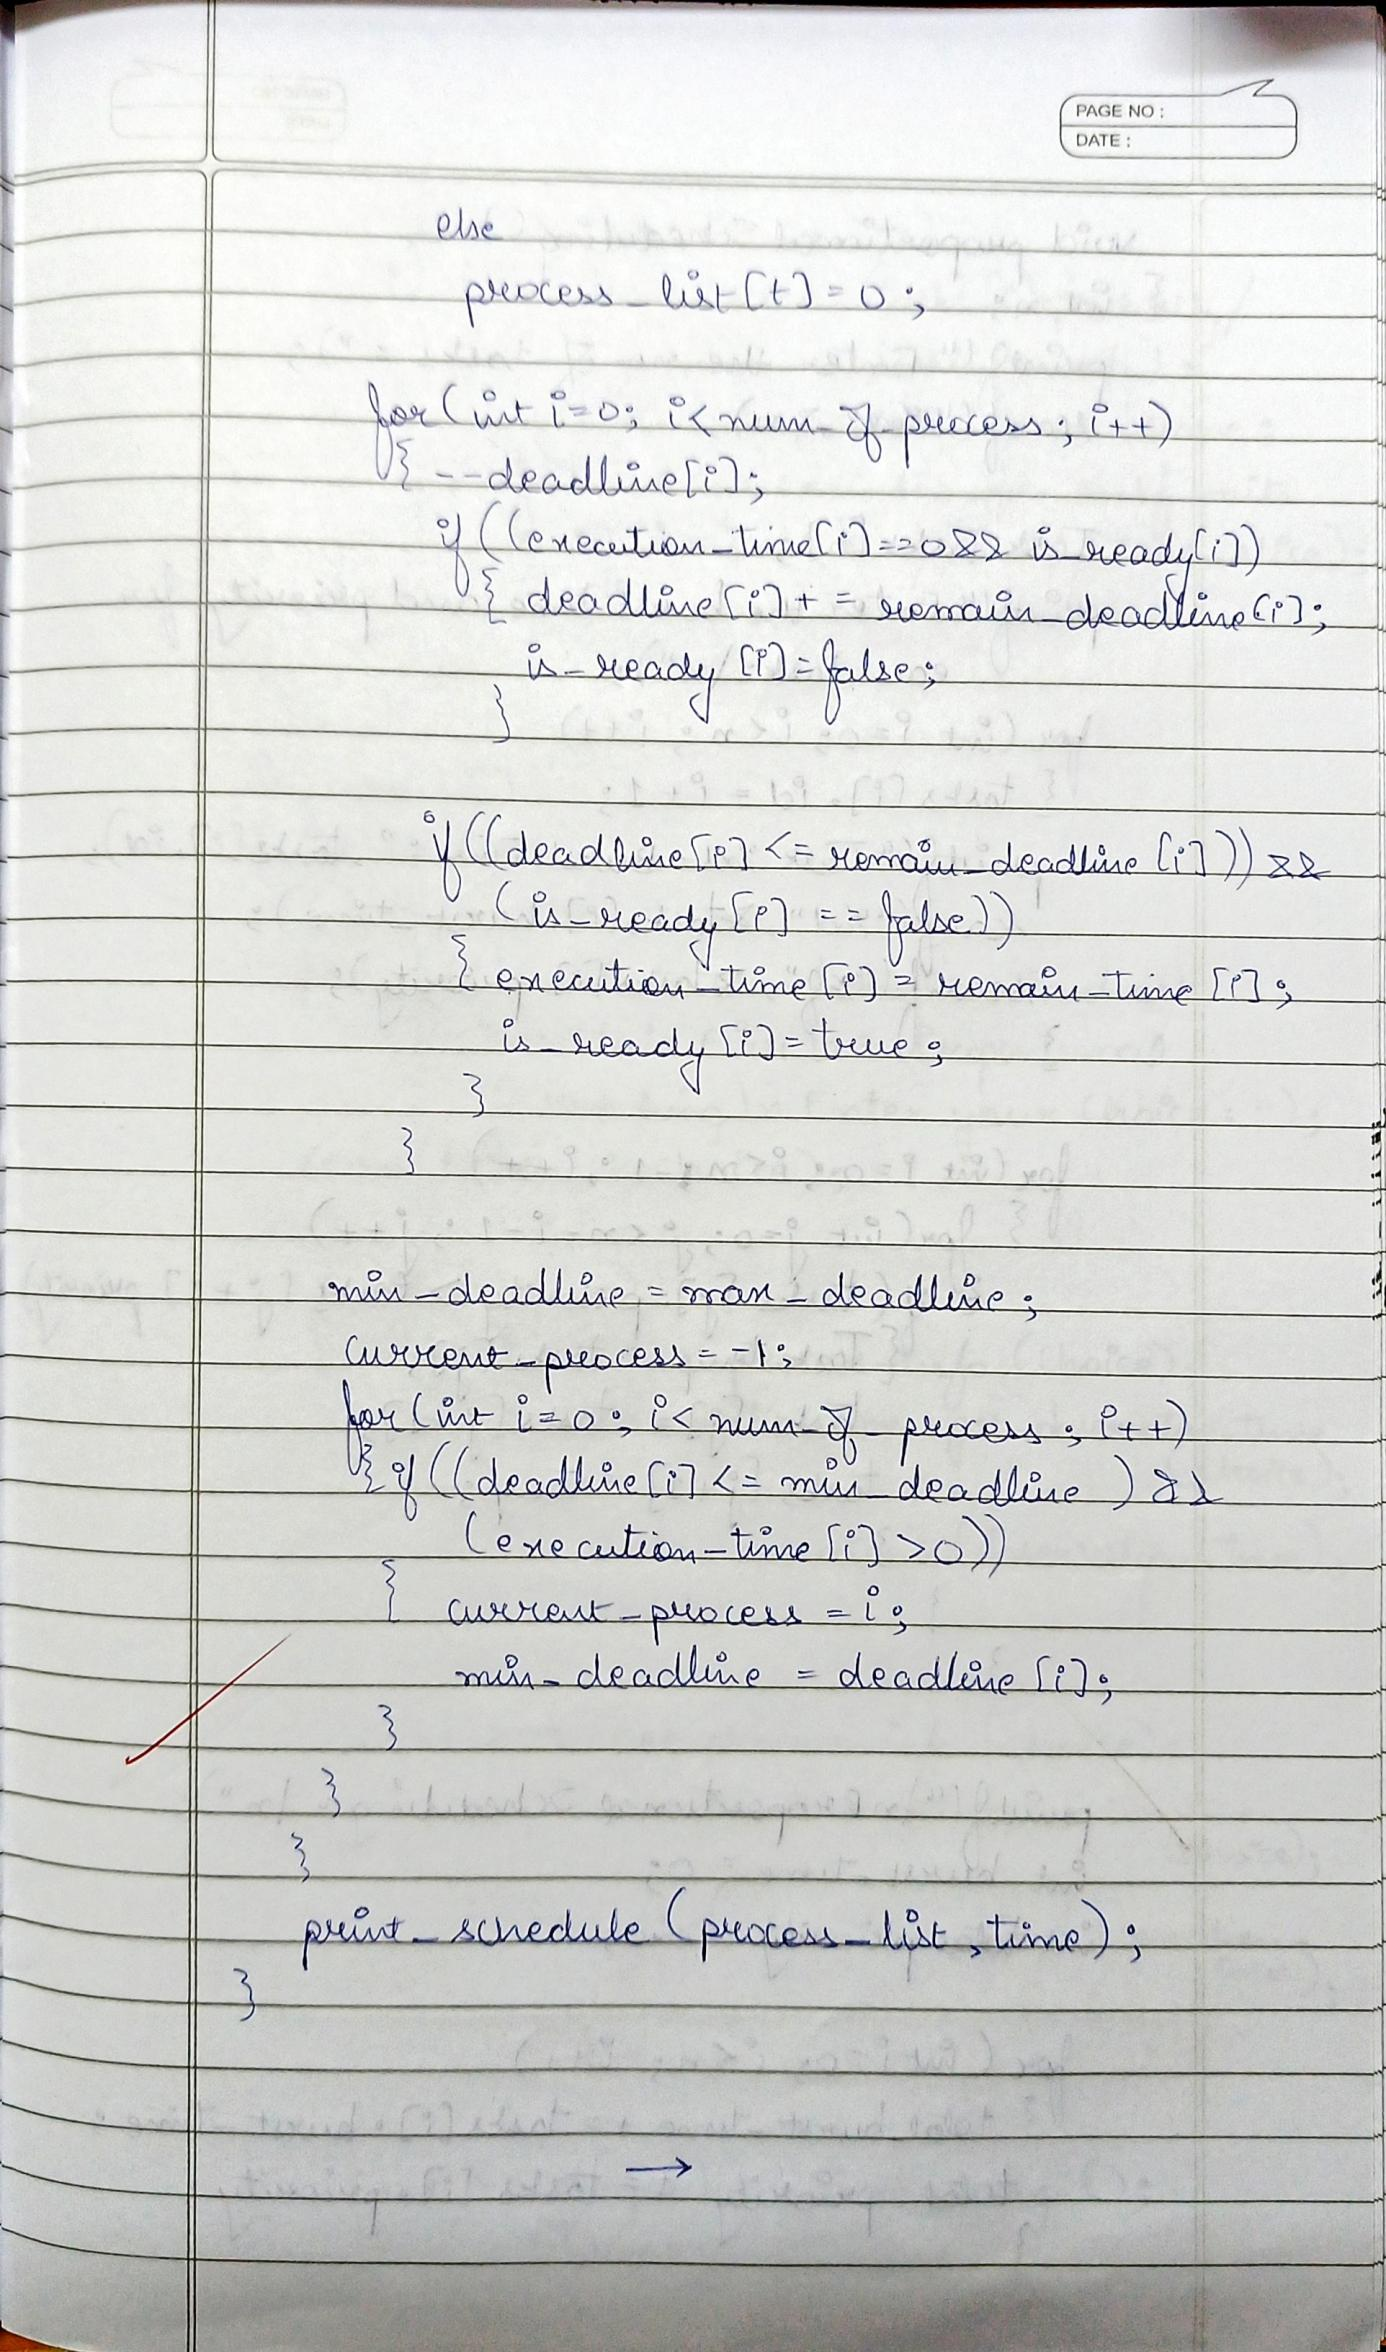 PAGE NO :
DATE :
else
process_list[t] = 0 ;
for (int i=0; i< num_of_process ; i++)
{ --deadline[i];
if ((execution_time[i]==0 && is_ready[i])
{ deadline[i] + = remain_deadline[i];
is_ready [i] = false ;
}
if ((deadline[i] <= remain_deadline [i])) &&
(is_ready [i] == false))
{ execution_time [i] = remain_time [i] ;
is_ready [i] = true ;
}
}
min_deadline = max_deadline ;
current_process = -1 ;
for (int i = 0 ; i< num_of_process ; i++)
{ if ((deadline [i] <= min_deadline ) &&
(execution_time [i] >0))
{ current_process = i ;
min_deadline = deadline [i] ;
}
}
}
print_schedule (process_list , time) ;
}
→